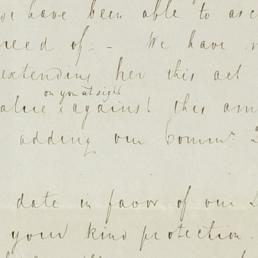 we have been able to
need of. - We have
extending her this act
on you at sight
value (against) this am
adding our Comm.
date in favor of our
your kind protection.